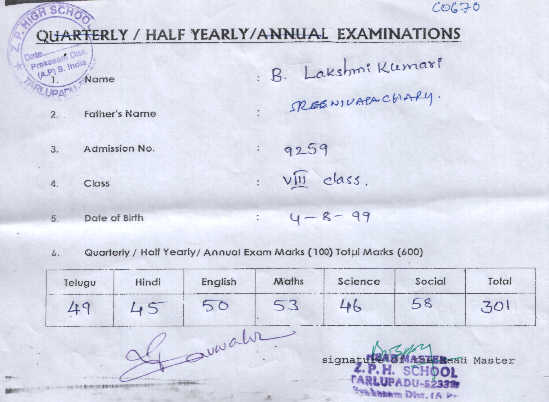 C0670
Z.P. HIGH SCHOOL
Date
Prakasam Dist.
(A.P) S. India
TARLUPADU
QUARTERLY / HALF YEARLY/ANNUAL EXAMINATIONS
1. Name : B. Lakshmi Kumari
2. Father's Name : SREENIVASACHARY.
3. Admission No. : 9259
4. Class : VIII class.
5. Date of Birth : 4-8-99
6. Quarterly / Half Yearly/ Annual Exam Marks (100) Total Marks (600)
Telugu Hindi English Maths Science Social Total
49 45 50 53 46 58 301
signature Head Master
HEAD MASTER
Z.P.H. SCHOOL
TARLUPADU-52333
Prakasam Dist. (A.P.)